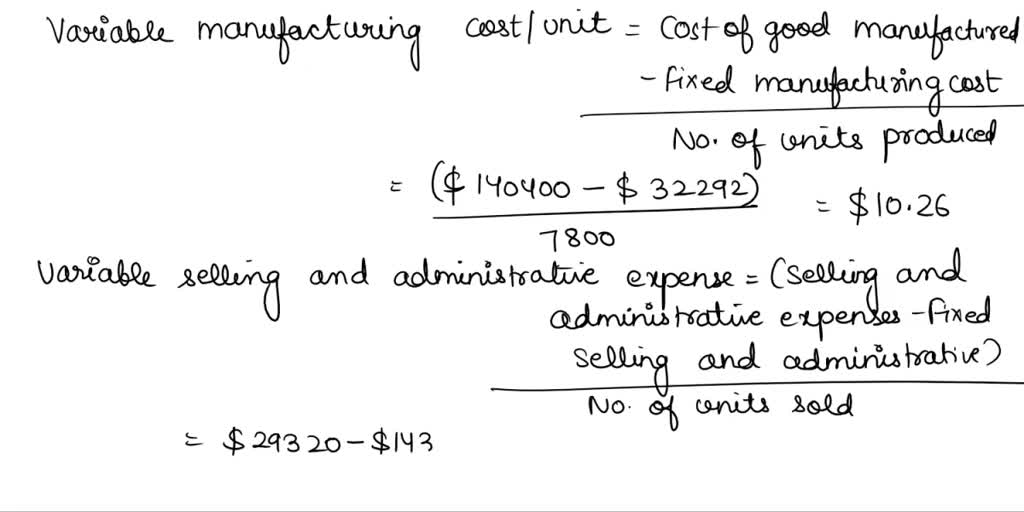 Variable manufacturing cost/unit = Cost of good manufactured
- fixed manufacturing cost
No. of units produced
= ($ 140400 - $ 32292)
7800
= $10.26
Variable selling and administrative expense = (Selling and
administrative expenses - fixed
selling and administrative)
No. of units sold
= $29320 - $143